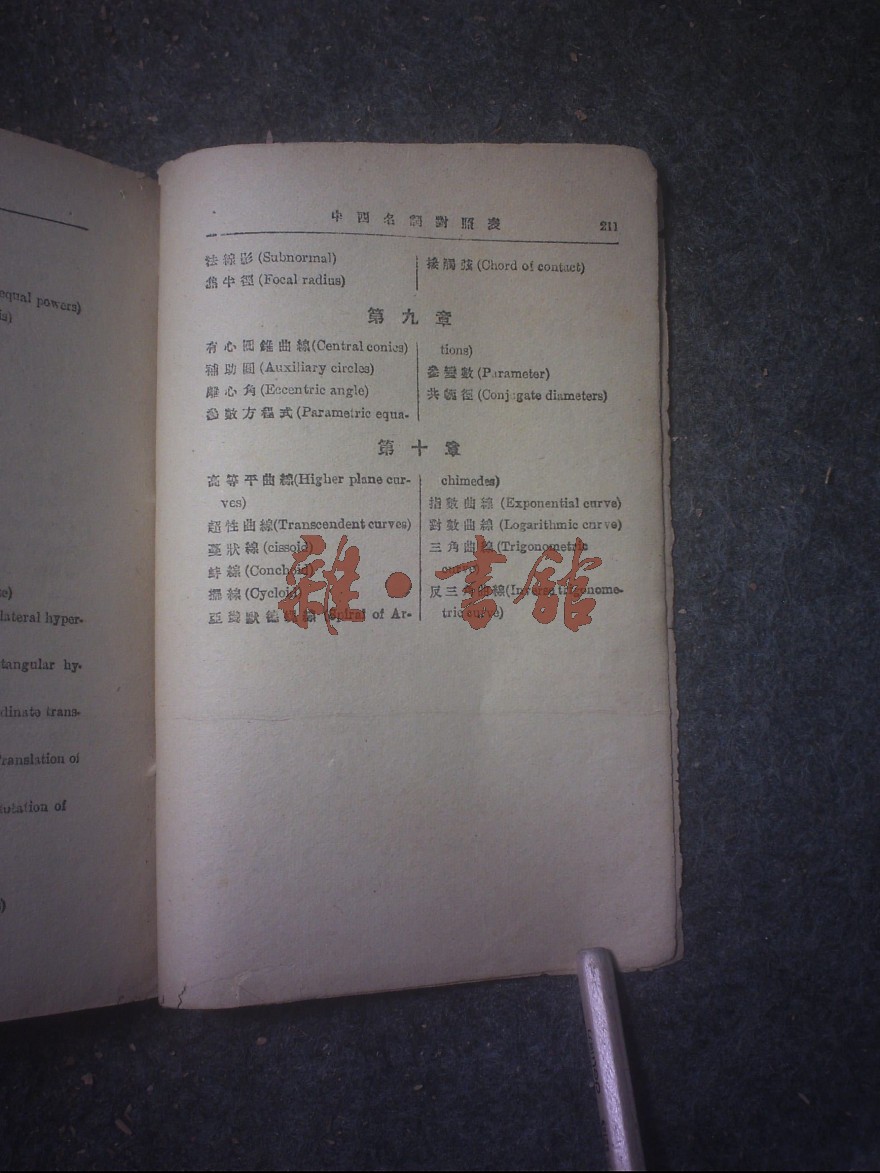 equal powers)
is)
e)
lateral hyper-
tangular hy-
dinate trans-
Translation of
Rotation of
)
中西名詞對照表 211
法線影 (Subnormal)
焦半徑 (Focal radius)
接觸弦 (Chord of contact)
第九章
有心圓錐曲線(Central conics)
補助圓 (Auxiliary circles)
離心角 (Eccentric angle)
參數方程式 (Parametric equa-
tions)
參變數 (Parameter)
共軛徑 (Conjugate diameters)
第十章
高等平曲線(Higher plane cur-
ves)
超性曲線(Transcendent curves)
蔓狀線 (cissoid)
蚌線 (Conchoid)
擺線 (Cycloid)
(Spiral of Ar-
chimedes)
指數曲線 (Exponential curve)
對數曲線 (Logarithmic curve)
三角曲線 (Trigonometric
curve)
反三角曲線(Inverse trigonome-
tric curve)
雜·書館